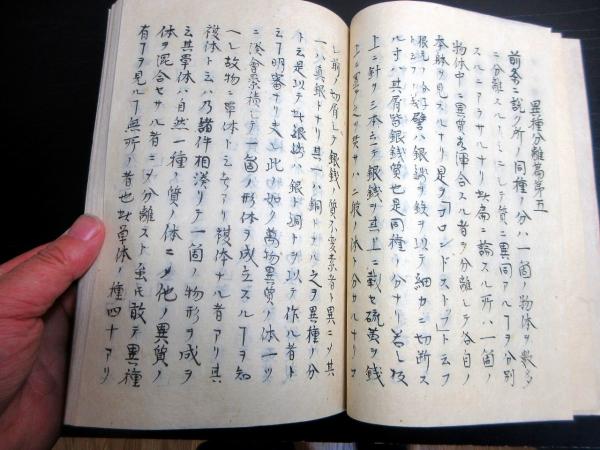 異種分離篇第五
前条ニ説ク所ノ同種ノ分ハ一箇ノ物体ヲ数多
ニ分離スルノミニシテ質ニ異同アルヿヲ分別
スルニアラサルナリ此篇ニ論スル所ハ一箇ノ
物体中ニ異質ヲ混合スル者ヲ分離シテ各自ノ
本躰ヲ見スルナリ是ヲ「ゴロンドストフ」ト云フ
譬ハ銀銭ヲ鉸ヲ以テ細カニ切断ス
ル寸ハ其屑皆銀銭質也是同種ノ分ナリ若シ板
上ニ針ヲ三本立テ銀銭ヲ其上ニ載セ硫黄ヲ銭
上ニ ニ ノ体ト分ルナリ
シ前ノ切屑シテ銀銭ノ質不変素者ト異ニメ其
一ハ真銀トナリ其一ハ銅トナル之ヲ異種ノ分
ト云是以テ此銀銭ハ銀ト銅トヲ以テ作ル者ト
云フ明審ナリ夫レ此ノ如ク萬物異質ノ体一ツ
ニ湊會累積シテ一箇ノ形体ヲ成立スルヿヲ知
一レ故物ニ単体ト云者アリ複体ナル者アリ其
複体ト云ハ乃諸件相湊リテ一箇ノ物形ヲ成ヲ
云其単体ハ自然一種ノ質ノ体ニメ他ノ異質ノ
体ヲ混合セサル者ニメ分離スト虽氏敢テ異種
有ヿヲ見ルヿ無所ノ者也此単体ノ種四十アリ